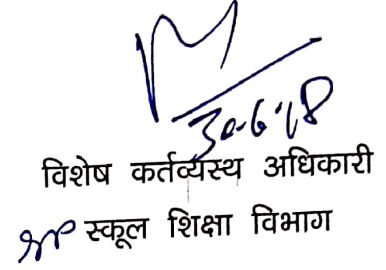 30-6-18
विशेष कर्तव्यस्थ अधिकारी
स्कूल शिक्षा विभाग